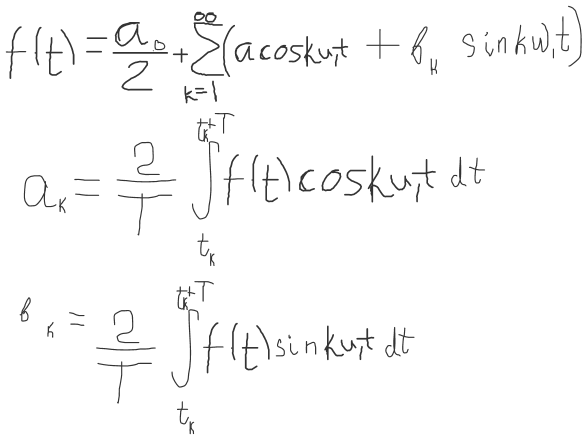 f(t) = a₀/2 + ∑_{k=1}^{∞} (a cos kω₁t + в_к sin kω₁t)
a_к = 2/T ∫_{t_к}^{t_к+T} f(t) cos kω₁t dt
в_к = 2/T ∫_{t_к}^{t_к+T} f(t) sin kω₁t dt